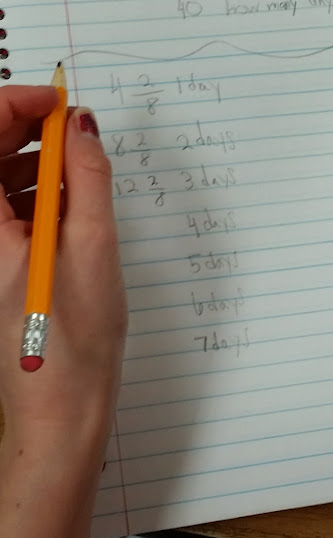 40 how many
4 2/8 1 day
8 2/8 2 days
12 2/8 3 days
4 days
5 days
6 days
7 days